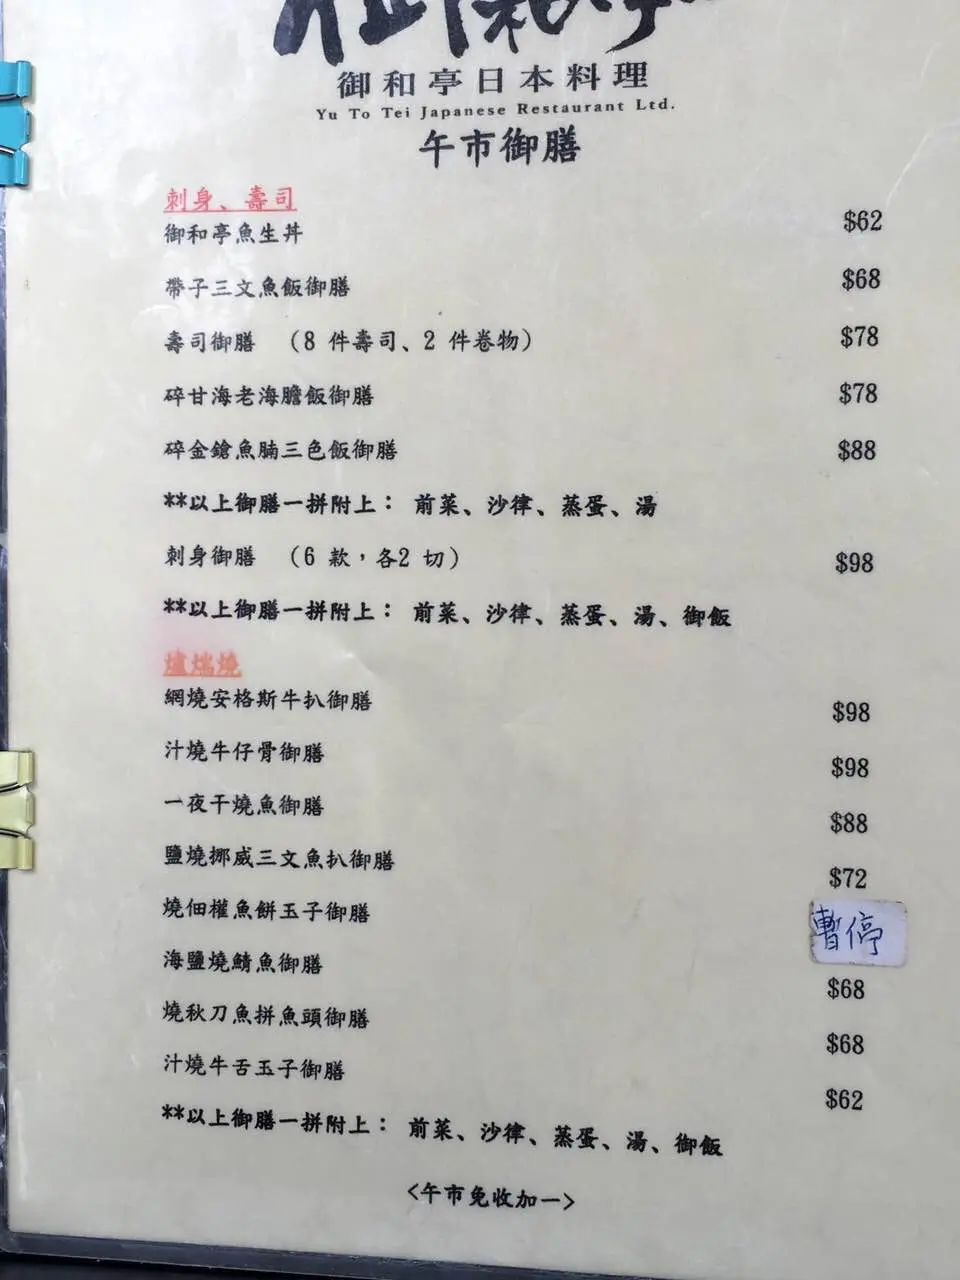 御和亭日本料理
Yu To Tei Japanese Restaurant Ltd.
午市御膳
刺身、壽司
御和亭魚生丼 $62
帶子三文魚飯御膳 $68
壽司御膳 (8 件壽司、2 件卷物) $78
碎甘海老海膽飯御膳 $78
碎金鎗魚腩三色飯御膳 $88
**以上御膳一拼附上： 前菜、沙律、蒸蛋、湯
刺身御膳 (6 款，各2 切) $98
**以上御膳一拼附上： 前菜、沙律、蒸蛋、湯、御飯
爐端燒
網燒安格斯牛扒御膳 $98
汁燒牛仔骨御膳 $98
一夜干燒魚御膳 $88
鹽燒挪威三文魚扒御膳 $72
燒佃權魚餅玉子御膳 暫停
海鹽燒鯖魚御膳 $68
燒秋刀魚拼魚頭御膳 $68
汁燒牛舌玉子御膳 $62
**以上御膳一拼附上： 前菜、沙律、蒸蛋、湯、御飯
<午市免收加一>